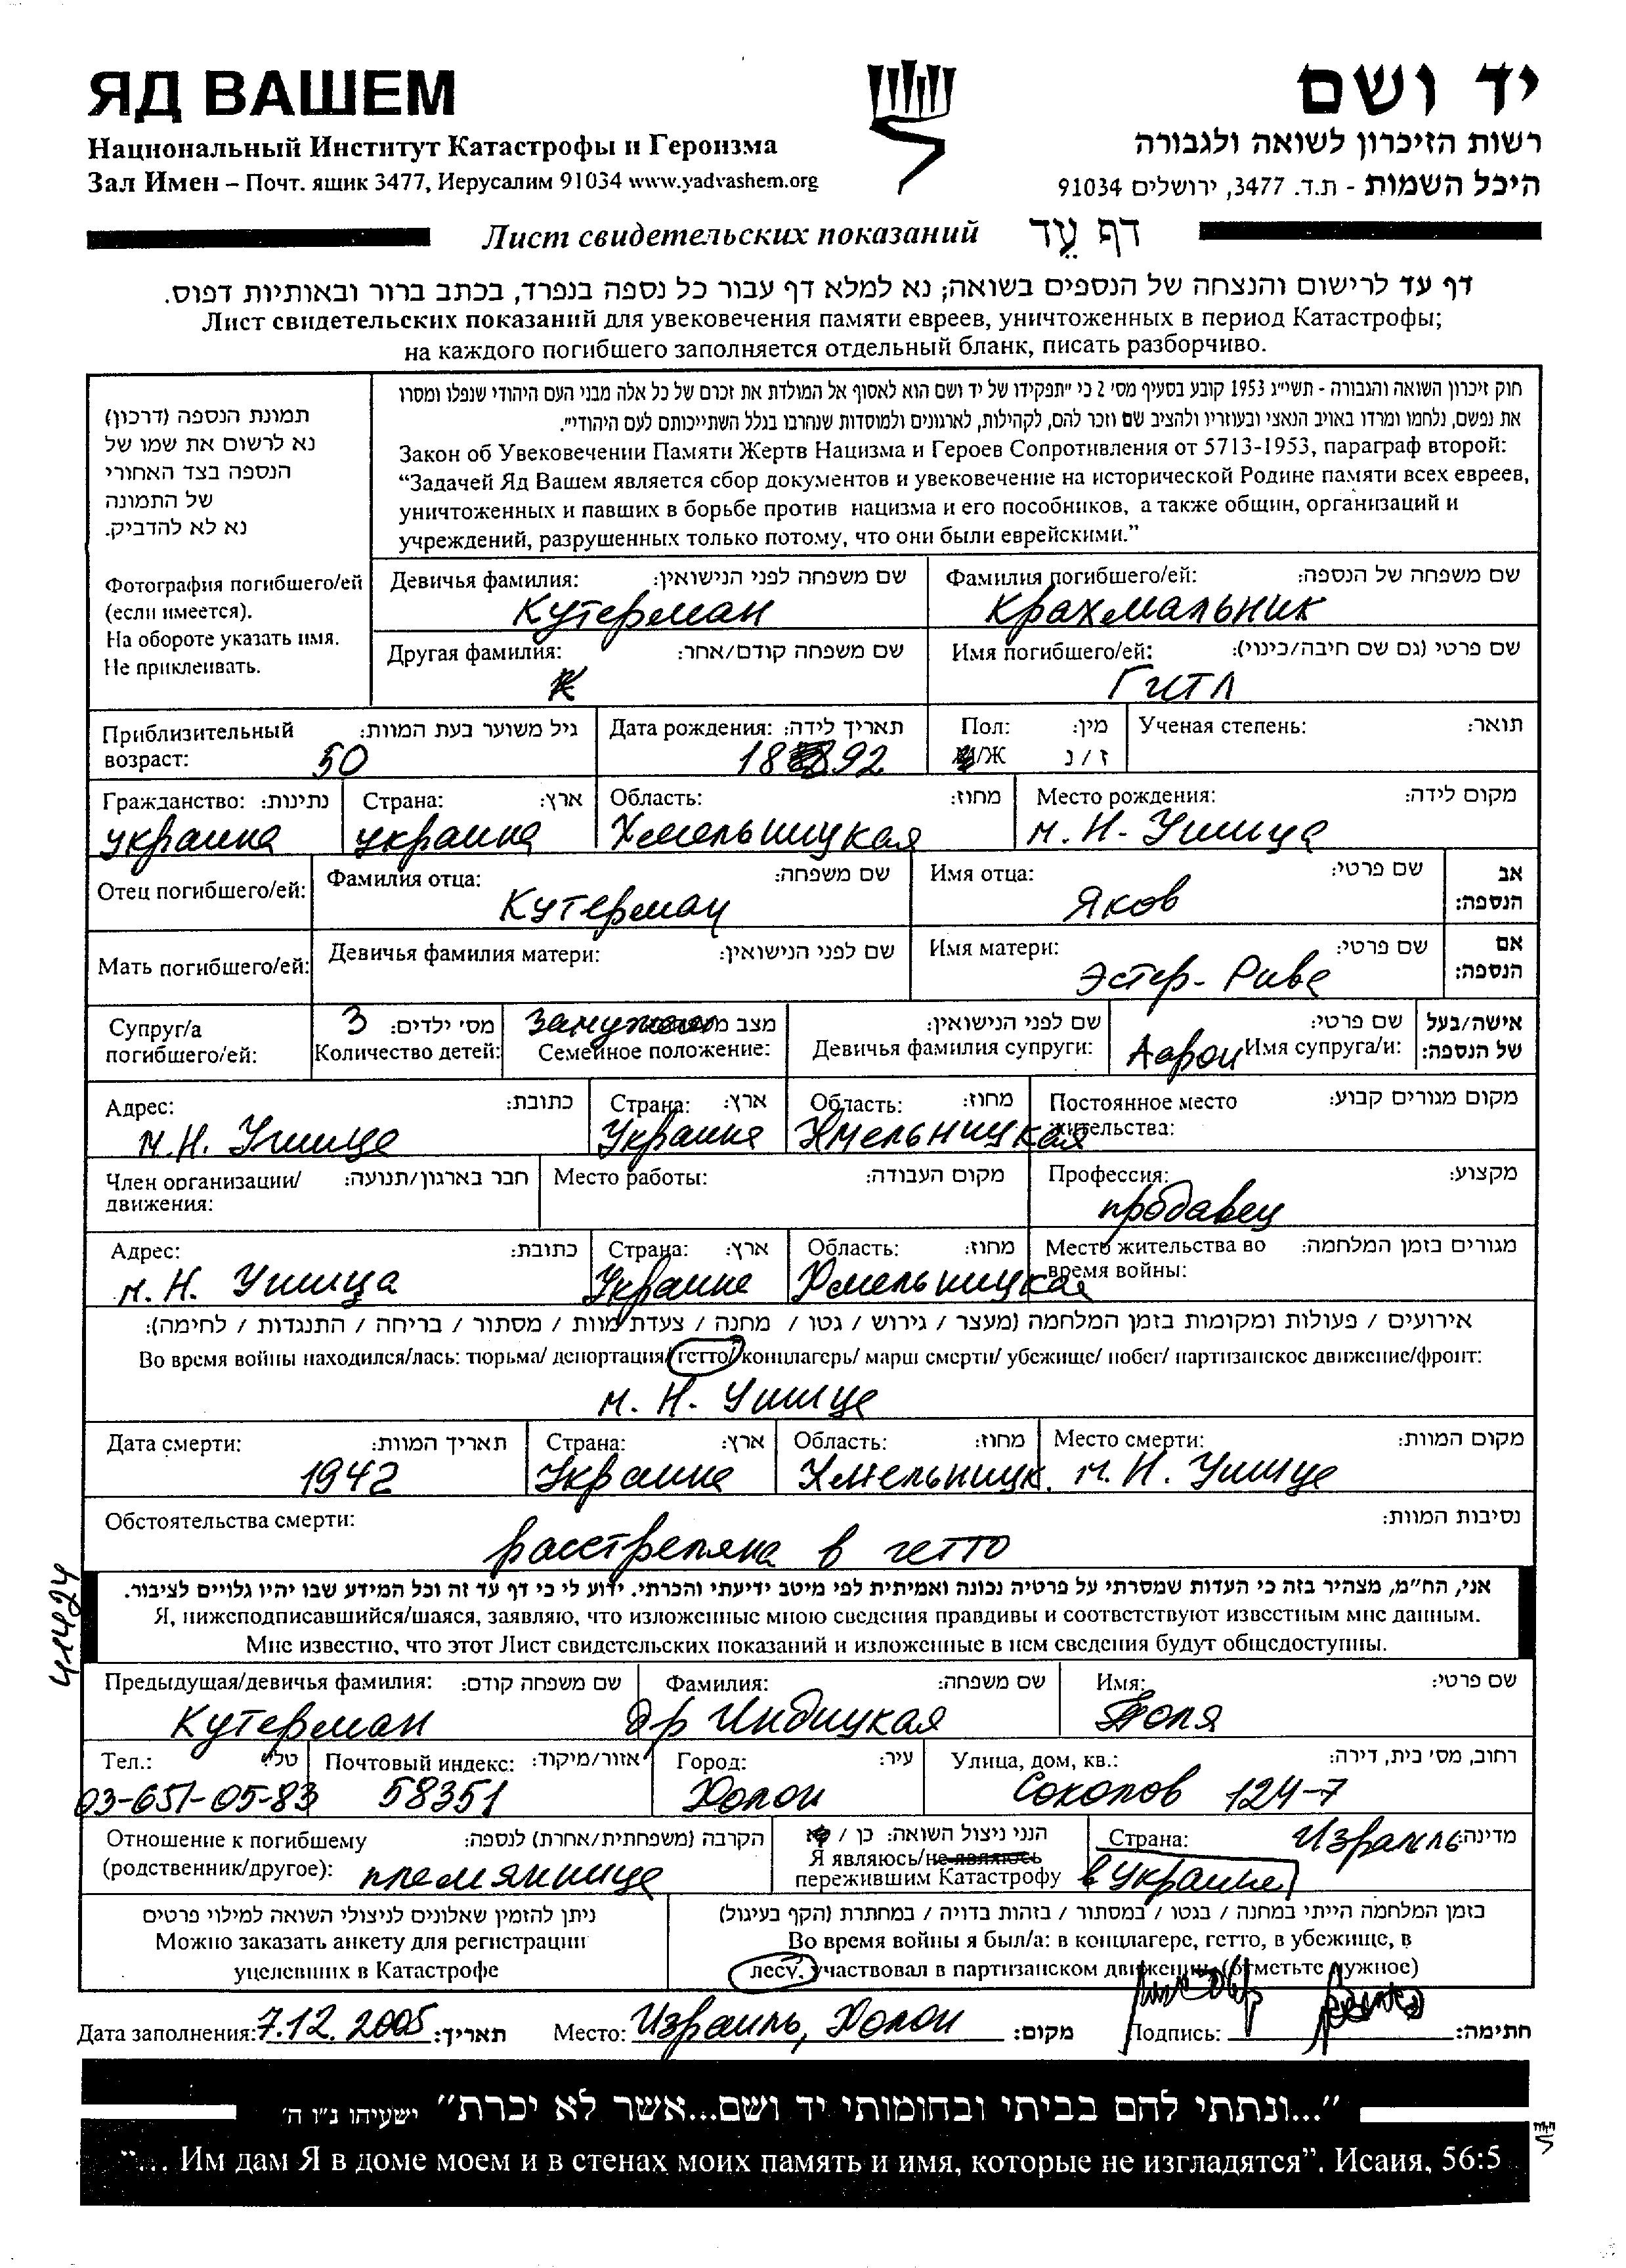 ЯД ВАШЕМ
יד ושם
Национальный Институт Катастрофы и Героизма
רשות הזיכרון לשואה ולגבורה
Зал Имен – Почт. ящик 3477, Иерусалим 91034 www.yadvashem.org
היכל השמות - ת.ד. 3477, ירושלים 91034
Лист свидетельских показаний דף עֵד
דף עד לרישום והנצחה של הנספים בשואה; נא למלא דף עבור כל נספה בנפרד, בכתב ברור ובאותיות דפוס.
Лист свидетельских показаний для увековечения памяти евреев, уничтоженных в период Катастрофы;
на каждого погибшего заполняется отдельный бланк, писать разборчиво.
תמונת הנספה (דרכון)
נא לרשום את שמו של
הנספה בצד האחורי
של התמונה
נא לא להדביק.
Фотография погибшего/ей
(если имеется).
На обороте указать имя.
Не приклеивать.
חוק זיכרון השואה והגבורה - תשי"ג 1953 קובע בסעיף מס' 2 כי "תפקידו של יד ושם הוא לאסוף אל המולדת את זכרם של כל אלה מבני העם היהודי שנפלו ומסרו
את נפשם, נלחמו ומרדו באויב הנאצי ובעוזריו ולהציב שם וזכר להם, לקהילות, לארגונים ולמוסדות שנחרבו בגלל השתייכותם לעם היהודי".
Закон об Увековечении Памяти Жертв Нацизма и Героев Сопротивления от 5713-1953, параграф второй:
“Задачей Яд Вашем является сбор документов и увековечение на исторической Родине памяти всех евреев,
уничтоженных и павших в борьбе против нацизма и его пособников, а также общин, организаций и
учреждений, разрушенных только потому, что они были еврейскими.”
Девичья фамилия: שם משפחה לפני הנישואין:
Кутерман
Фамилия погибшего/ей: שם משפחה של הנספה:
Крахмальник
Другая фамилия: שם משפחה קודם/אחר:
Имя погибшего/ей: שם פרטי (גם שם חיבה/כינוי):
Гитл
Приблизительный возраст: גיל משוער בעת המוות:
50
Дата рождения: תאריך לידה:
1892
Пол: מין:
М/Ж ז / נ
Ученая степень: תואר:
Гражданство: נתינות:
украина
Страна: ארץ:
украина
Область: מחוז:
Хмельницкая
Место рождения: מקום לידה:
м. Н. Ушица
Отец погибшего/ей:
Фамилия отца: שם משפחה:
Кутерман
Имя отца: שם פרטי:
Яков
אב הנספה:
Мать погибшего/ей:
Девичья фамилия матери: שם לפני הנישואין:
Имя матери: שם פרטי:
Эстер-Рива
אם הנספה:
Супруг/а погибшего/ей:
3 מס' ילדים:
Количество детей:
замужем
Семейное положение:
שם לפני הנישואין:
Девичья фамилия супруги:
שם פרטי:
Аарон Имя супруга/и:
אישה/בעל של הנספה:
Адрес: כתובת:
м. Н. Ушица
Страна: ארץ:
Украина
Область: מחוז:
Хмельницкая
Постоянное место жительства: מקום מגורים קבוע:
Член организации/движения: חבר בארגון/תנועה:
Место работы: מקום העבודה:
Профессия: מקצוע:
продавец
Адрес: כתובת:
м. Н. Ушица
Страна: ארץ:
Украина
Область: מחוז:
Хмельницкая
Место жительства во время войны: מגורים בזמן המלחמה:
אירועים / פעולות ומקומות בזמן המלחמה (מעצר / גירוש / גטו / מחנה / צעדת מוות / מסתור / בריחה / התנגדות / לחימה):
Во время войны находился/лась: тюрьма/ депортация/ гетто/ концлагерь/ марш смерти/ убежище/ побег/ партизанское движение/фронт:
м. Н. Ушица
Дата смерти: תאריך המוות:
1942
Страна: ארץ:
Украина
Область: מחוז:
Хмельницк.
Место смерти: מקום המוות:
м. Н. Ушица
Обстоятельства смерти: נסיבות המוות:
расстреляна в гетто
41424
אני, הח"מ, מצהיר בזה כי העדות שמסרתי על פרטיה נכונה ואמיתית לפי מיטב ידיעתי והכרתי. ידוע לי כי דף עד זה וכל המידע שבו יהיו גלויים לציבור.
Я, нижеподписавшийся/шаяся, заявляю, что изложенные мною сведения правдивы и соответствуют известным мне данным.
Мне известно, что этот Лист свидетельских показаний и изложенные в нем сведения будут общедоступны.
Предыдущая/девичья фамилия: שם משפחה קודם:
Кутерман
Фамилия: שם משפחה:
Индицкая
Имя: שם פרטי:
Поля
Тел.: טל':
03-651-05-83
Почтовый индекс: אזור/מיקוד:
58351
Город: עיר:
Холон
Улица, дом, кв.: רחוב, מס' בית, דירה:
Соколов 124-7
Отношение к погибшему (родственник/другое): הקרבה (משפחתית/אחרת) לנספה:
племянница
הנני ניצול השואה: כן /
Я являюсь/не являюсь
пережившим Катастрофу
Страна: מדינה:
Израиль
в Украине
ניתן להזמין שאלונים לניצולי השואה למילוי פרטים
Можно заказать анкету для регистрации
уцелевших в Катастрофе
בזמן המלחמה הייתי במחנה / בגטו / במסתור / בזהות בדויה / במחתרת (הקף בעיגול)
Во время войны я был/а: в концлагере, гетто, в убежище, в
лесу, участвовал в партизанском движении (отметьте нужное)
Дата заполнения: 7.12.2005 תאריך: Место: Израиль, Холон מקום: Подпись: חתימה:
"...ונתתי להם בביתי ובחומותי יד ושם...אשר לא יכרת" ישעיהו נ"ו ה'
“... Им дам Я в доме моем и в стенах моих память и имя, которые не изгладятся”. Исаия, 56:5